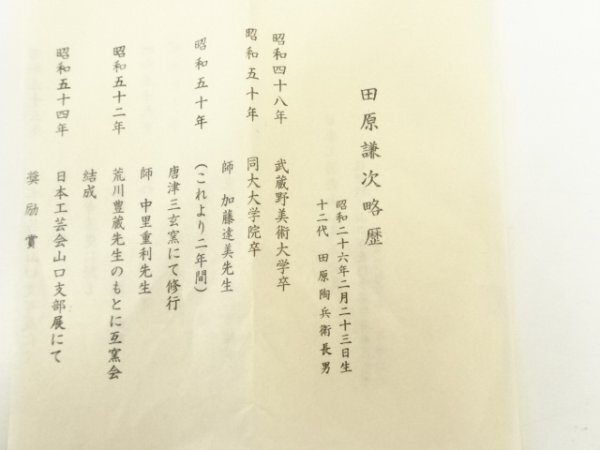 田原謙次略歴
昭和二十六年二月二十三日生
十二代 田原陶兵衛長男
昭和四十八年 武蔵野美術大学卒
昭和五十年 同大大学院卒
師 加藤達美先生
昭和五十年 (これより二年間)
唐津三玄窯にて修行
師 中里重利先生
昭和五十二年 荒川豊蔵先生のもとに互窯会
結成
昭和五十四年 日本工芸会山口支部展にて
奨励賞